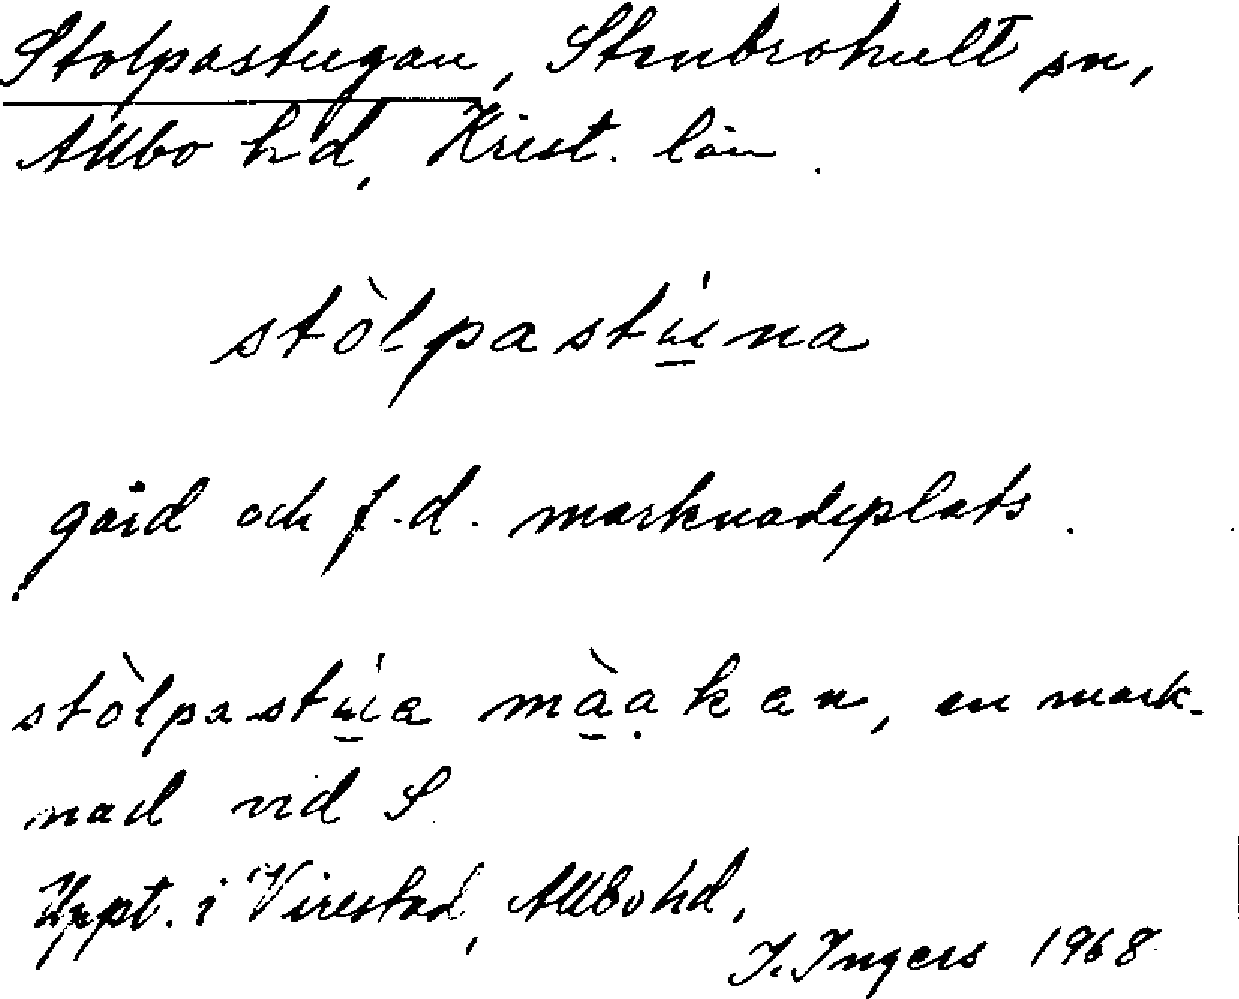 Stolpastugan, Stenbrohult sn,
Allbo hd, Krist. län.
stòlpastú̲na
gård och f.d. marknadsplats.
stòlpastú̲a mà̲ạkan, en mark-
nad vid S
Uppt. i Virestad, Allbo hd,
I. Ingers 1968